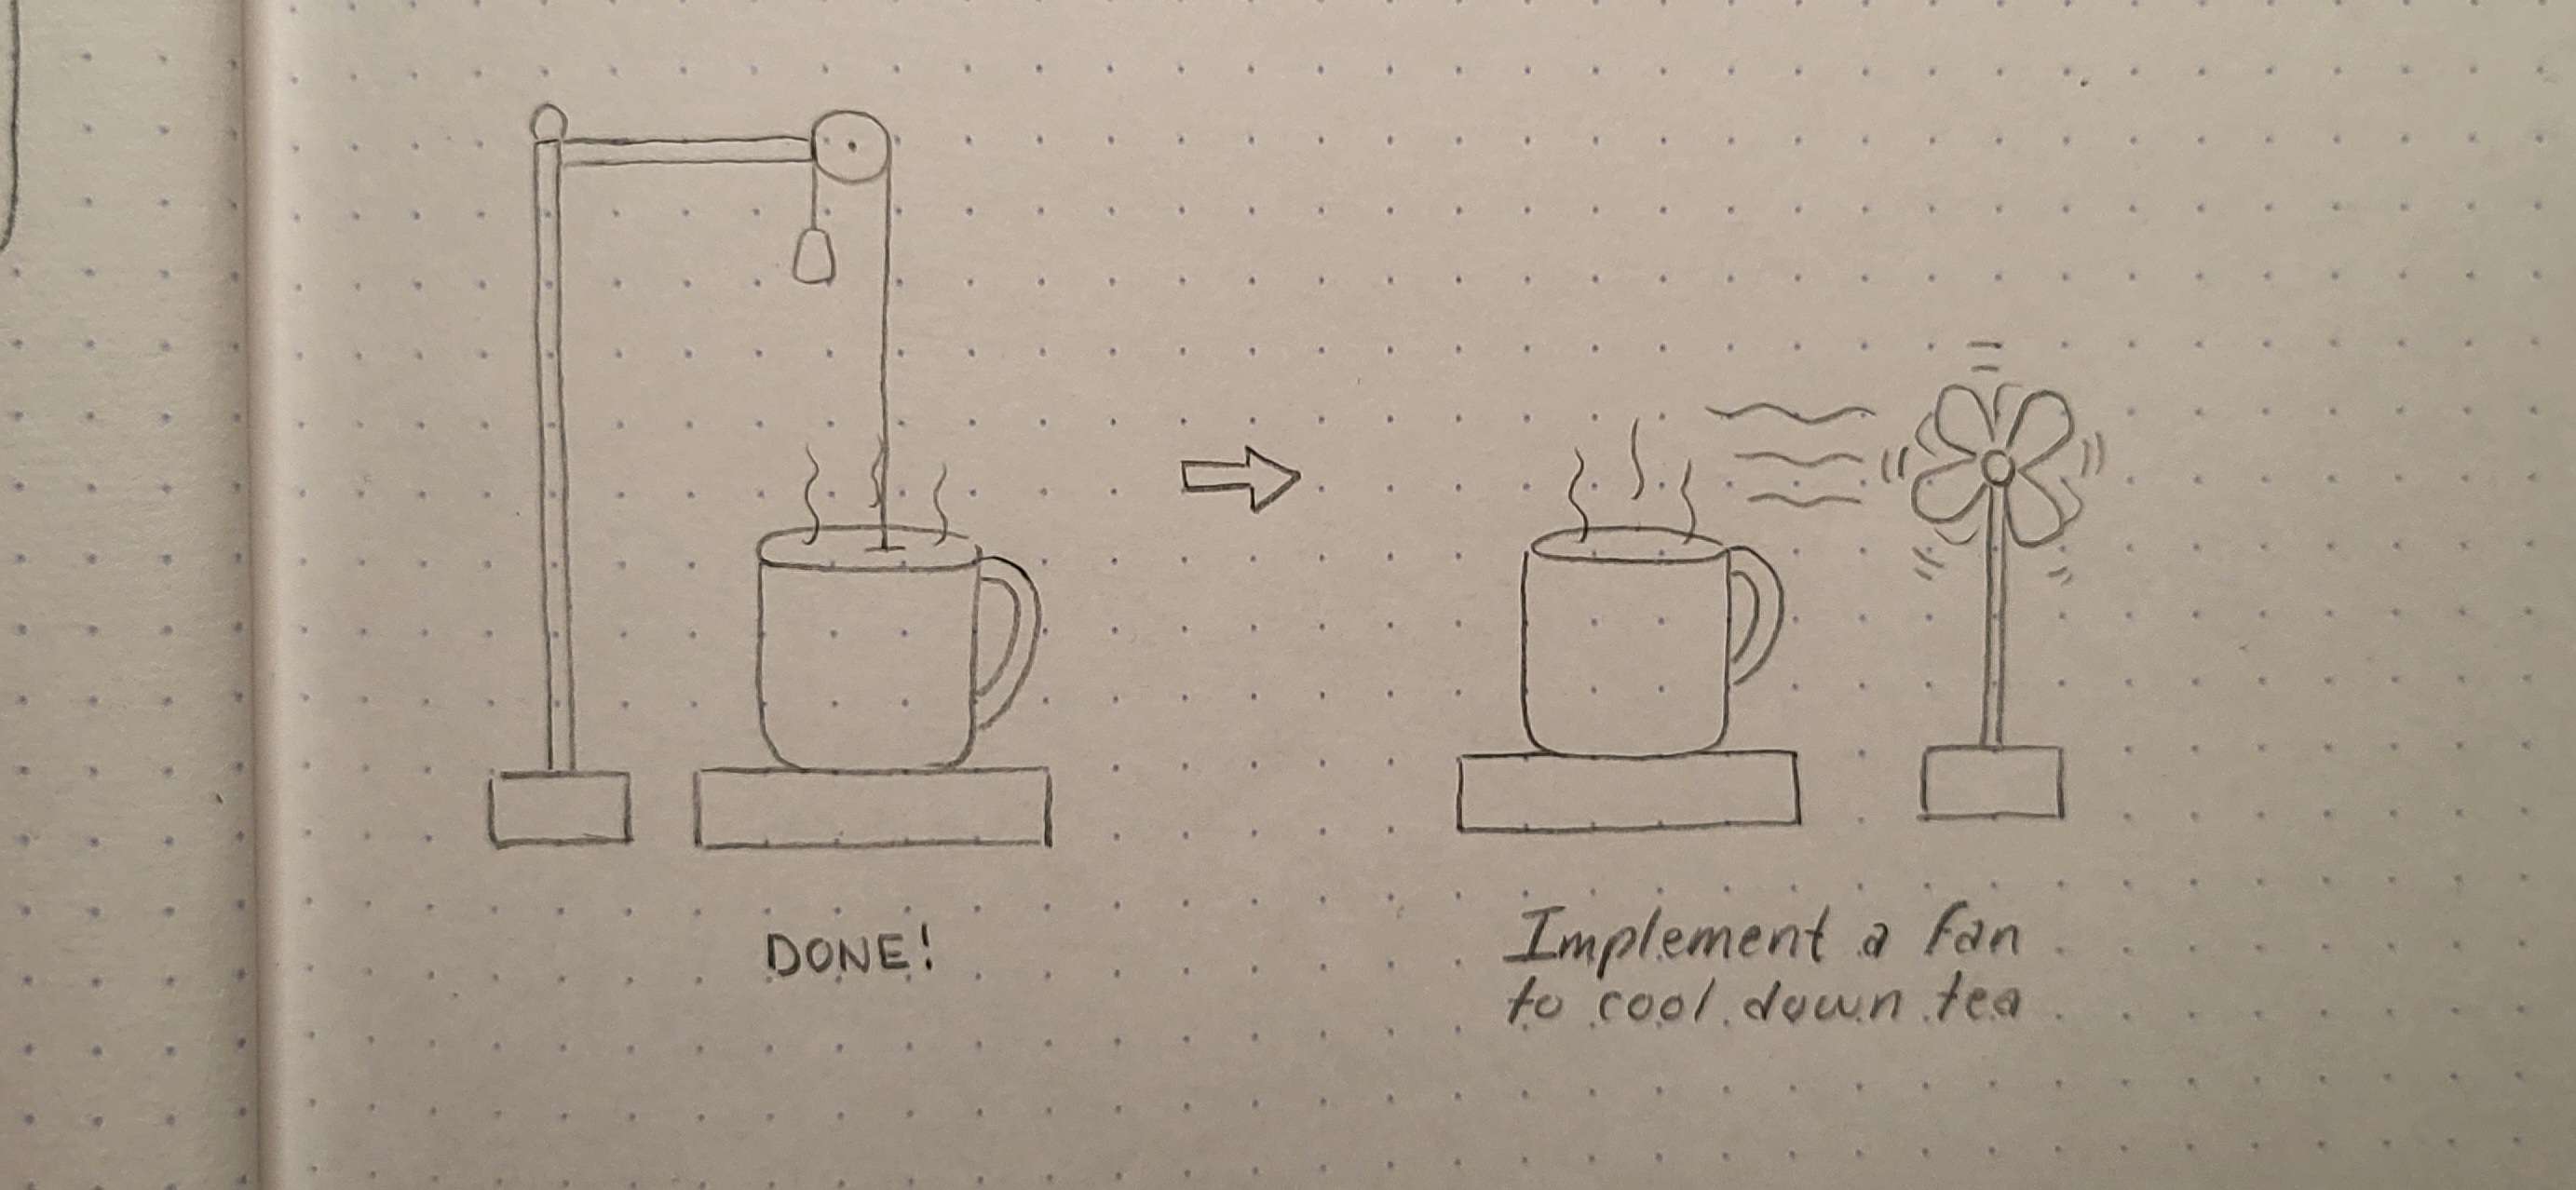 DONE!
Implement a fan
to cool down tea